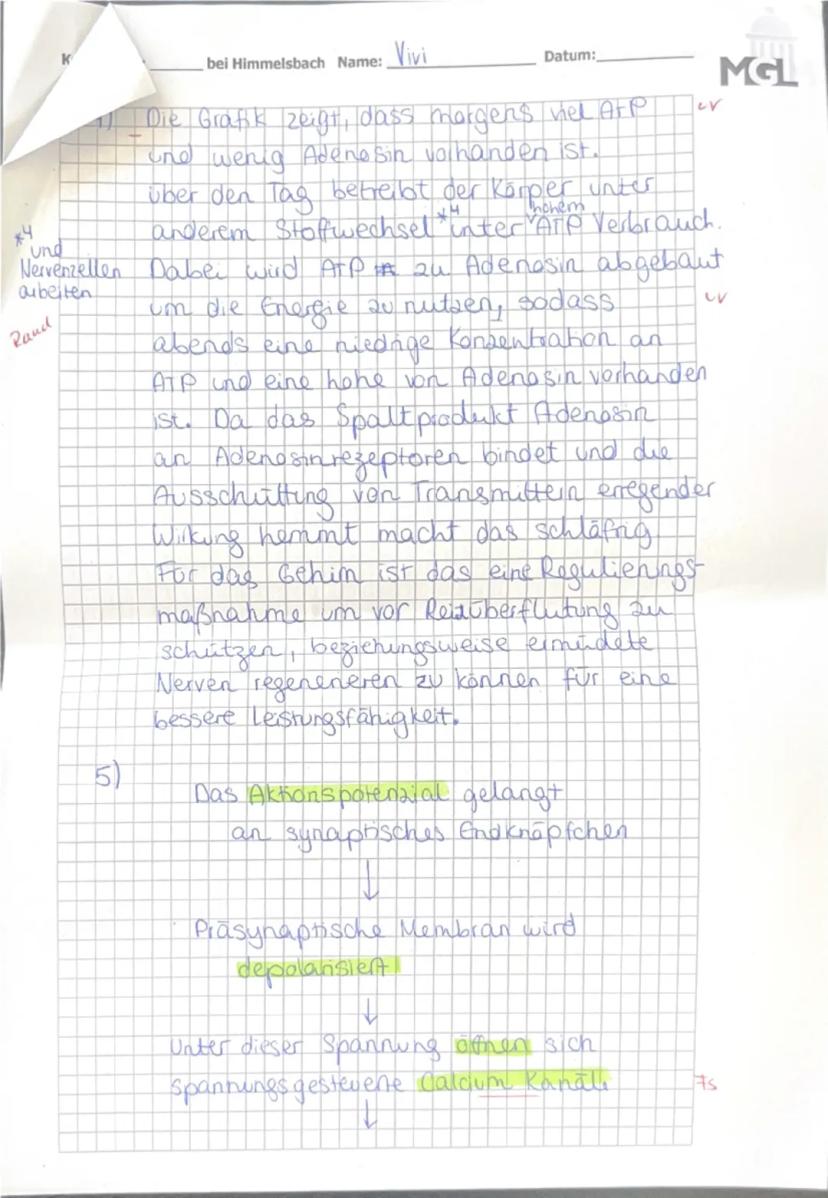 K
bei Himmelsbach Name: Vivi Datum:
MGL
1) Die Grafik zeigt, dass morgens viel ATP
und wenig Adenosin vorhanden ist.
über den Tag betreibt der Körper unter
anderem Stoffwechsel *4 unter hohem ATP Verbrauch.
*4
und
Nervenzellen
arbeiten
Rand
Dabei wird ATP zu Adenosin abgebaut
um die Energie zu nutzen, sodass
abends eine niedrige Konzentration an
ATP und eine hohe von Adenosin vorhanden
ist. Da das Spaltprodukt Adenosin
an Adenosinrezeptoren bindet und die
Ausschüttung von Transmittern erregender
Wirkung hemmt macht das schläfrig
Für das Gehirn ist das eine Regulierungs-
maßnahme um vor Reizüberflutung zu
schützen, beziehungsweise ermüdete
Nerven regenerieren zu können für eine
bessere Leistungsfähigkeit.
5)
Das Aktionspotenzial gelangt
an synaptisches Endknöpfchen
↓
Präsynaptische Membran wird
depolarisiert
↓
Unter dieser Spannung öffnen sich
spannungsgesteuerte Calcium Kanäle
↓